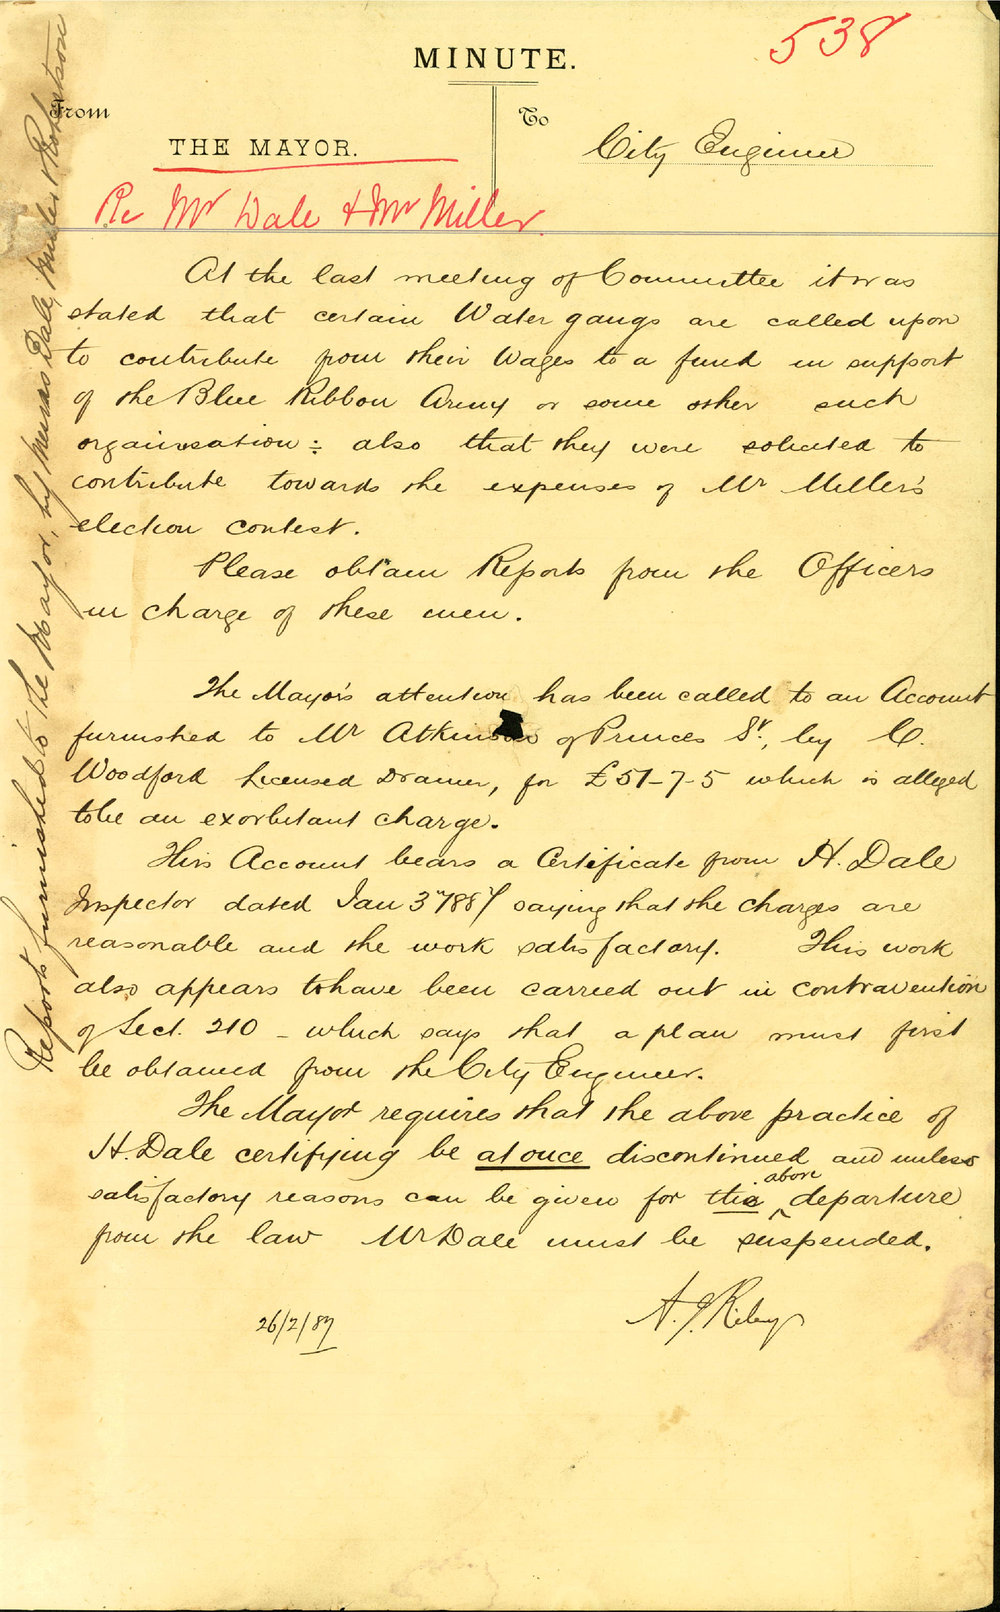 538
MINUTE.
From
To
THE MAYOR.
City Engineer
Re Mr Dale & Mr Miller.
At the last meeting of Committee it was
stated that certain Water gangs are called upon
to contribute from their Wages to a fund in support
of the Blue Ribbon Army or some other such
organisation: also that they were solicited to
contribute towards the expenses of Mr Miller's
election contest.
Please obtain Reports from the Officers
in charge of these men.
The Mayor's attention has been called to an Account
furnished to Mr Atkinson of Princes St, by C.
Woodford Licensed Drainer, for £51-7-5 which is alleged
to be an exorbitant charge.
This Account bears a Certificate from H. Dale
Inspector dated Jan 3rd 1887 saying that the charges are
reasonable and the work satisfactory. This work
also appears to have been carried out in contravention
of Sect. 210 - which says that a plan must first
be obtained from the City Engineer.
The Mayor requires that the above practice of
H. Dale certifying be at once discontinued and unless
satisfactory reasons can be given for the above departure
from the law Mr Dale must be suspended.
A. J. Riley
26/2/87
Reports furnished to the Mayor, by Messrs Dale, Miller & Robertson